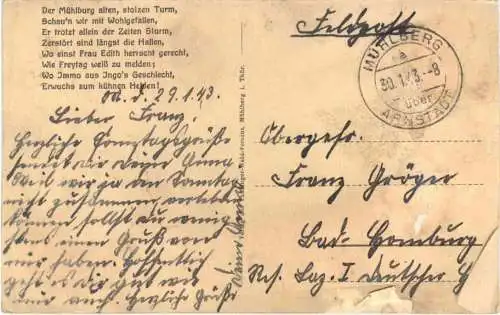 Der Mühlburg alten, stolzen Turm,
Schau'n wir mit Wohlgefallen,
Er trotzt allein der Zeiten Sturm,
Zerstört sind längst die Hallen,
Wo einst Frau Edith herrscht gerecht,
Wie Freytag weiß zu melden;
Wo Immo aus Ingo's Geschlecht,
Erwuchs zum kühnen Helden!
O. d. 29.1.43.
Lieber Franz,
Herzliche Sonntagsgrüße
sendet dir deine Anna
Weil wir ja am Sonntag
nicht zusammen
können sollst du wenig
stens einen Gruß von
mir haben. Hoffentlich
geht es dir gut wie
mir auch. Herzliche Grüße
Deine Anna
Mühlberg i. Thür.
Feldpost
MÜHLBERG
30.1.43.-8
über
ARNSTADT
Obergefr.
Franz Gröger
Bad-Homburg
Res. Laz. I Deutsche H